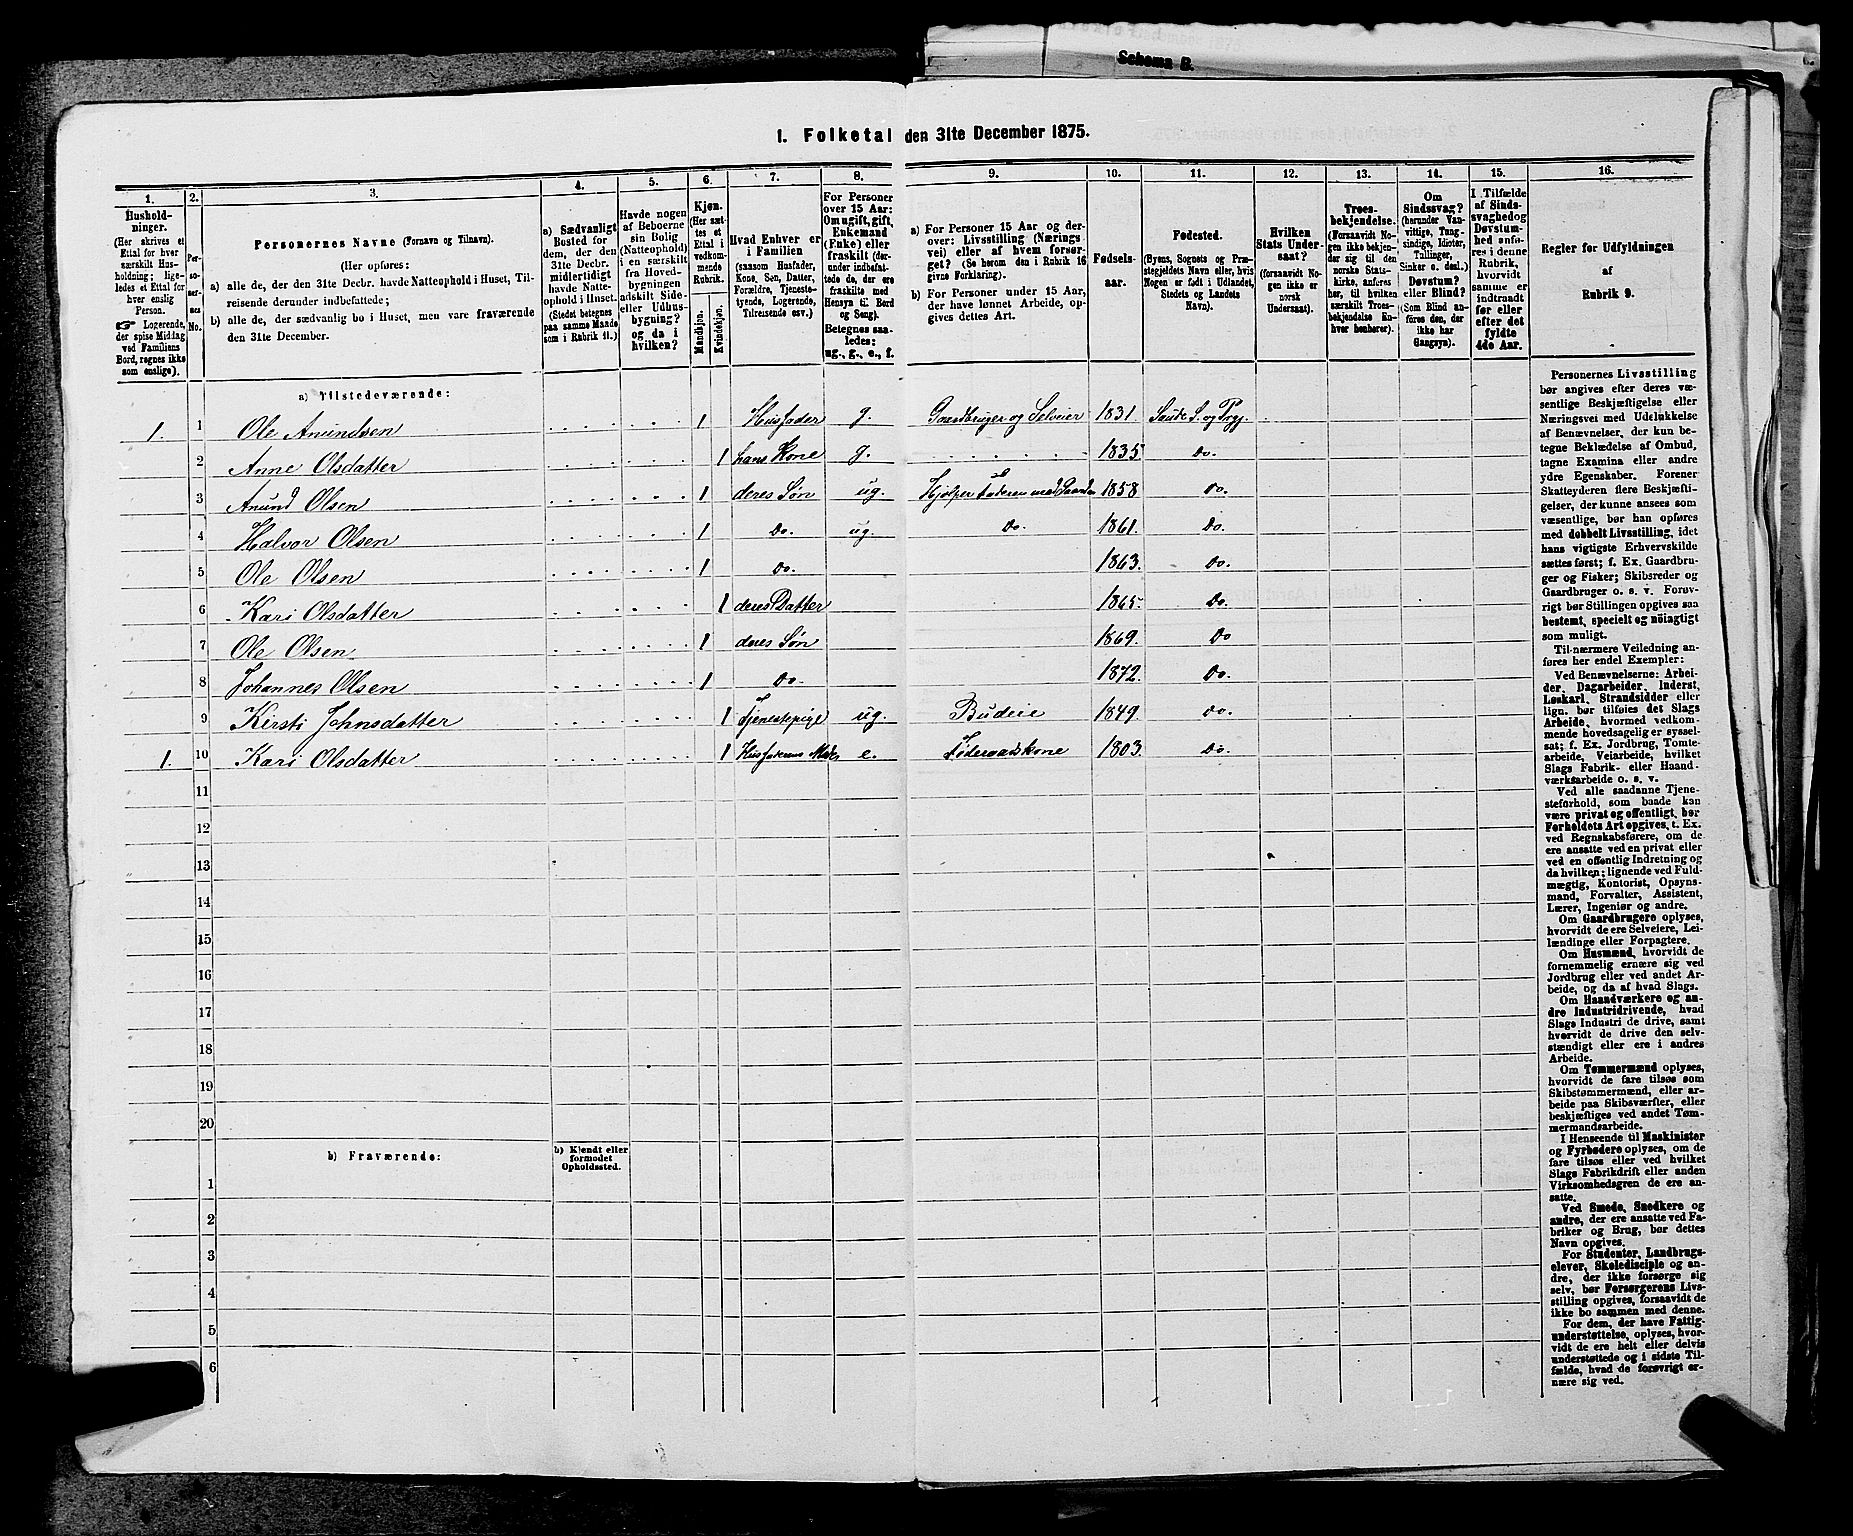 Schema B.
I. Folketal den 31te December 1875.
1. 2. 3. 4. 5. 6. 7. 8. 9. 10. 11. 12. 13. 14. 15. 16.
Hushold-
ninger.
(Her skrives et
Ettal for hver
særskilt Hus-
holdning; lige-
ledes et Ettal for
hver enslig
Person.
☞ Logerende,
der spise Middag
ved Familiens
Bord, regnes ikke
som enslige).
Per-
so-
ner-
nes
No.
Personernes Navne (Fornavn og Tilnavn).
(Her opføres:
a) alle de, der den 31te Decbr. havde Natteophold i Huset, Til-
reisende derunder indbefattede;
b) alle de, der sædvanlig bo i Huset, men vare fraværende
den 31te December.
a) Sædvanligt
Bosted for
dem, der den
31te Decbr.
midlertidigt
havde Natte-
ophold i Huset.
(Stedet betegnes
paa samme Maade
som i Rubrik 11.)
Havde nogen
af Beboerne
sin Bolig
(Natteophold)
i en særskilt
fra Hoved-
bygningen
adskilt Side-
eller Udhus-
bygning?
og da i
hvilken?
Kjøn.
(Her sæt-
tes et
Ettal i
vedkom-
mende
Rubrik.
Mandkjøn.
Kvindekjøn.
Hvad Enhver er
i Familien
(saasom Husfader,
Kone, Søn, Datter,
Forældre, Tjeneste-
tyende, Logerende,
Tilreisende osv.)
For Personer
over 15 Aar:
Om ugift, gift,
Enkemand
(Enke) eller
fraskilt (der-
under indbefat-
tede de, der ere
fraskilte med
Hensyn til Bord
og Seng).
Betegnes saa-
ledes:
ug., g., e., f.
a) For Personer 15 Aar og der-
over: Livsstilling (Nærings-
vei) eller af hvem forsør-
get? (Se herom den i Rubrik 16
givne Forklaring).
b) For Personer under 15 Aar,
der have lønnet Arbeide, op-
gives dettes Art.
Fødsels-
aar.
Fødested.
(Byens, Sognets og Præ-
stegjeldets Navn eller, hvis
Nogen er født i Udlandet,
Stedets og Landets
Navn).
Hvilken
Stats Under-
saat?
(forsaavidt No-
gen ikke er
norsk
Undersaat).
Troes-
bekjendelse.
(Forsaavidt No-
gen ikke bekjen-
der sig til den
norske Stats-
kirke, anføres
her, til hvilken
særskilt Troes-
bekjendelse En-
hver henhører).
Om
Sindssvag?
(herunder Van-
vittige, Tung-
sindige, Idioter,
Tullinger,
Sinker o. desl.)
Døvstum?
eller Blind?
(Som Blind an-
føres den, der
ikke har
Gangsyn).
I Tilfælde
af Sinds-
svaghed og
Døvstum-
hed anfø-
res i denne
Rubrik,
hvorvidt
samme er
indtraadt
før eller
efter det
fyldte
4de Aar.
Regler for Udfyldningen
af
Rubrik 9.
a) Tilstedeværende:
1. 1 Ole Amundsen 1 Husfader g. Gaardbruger og Selveier 1831. Saude S. og Prgj.
2 Anne Olsdatter 1 hans Kone g. 1835 Do.
3 Amund Olsen 1 deres Søn ug. Hjælper Faderen med Gaarden 1858 Do.
4 Halvor Olsen 1 Do. ug. Do. 1861. Do.
5 Ole Olsen 1 Do. 1863. Do.
6 Kari Olsdatter 1 deres Datter 1865. Do.
7 Ole Olsen 1 deres Søn 1869. Do
8 Johannes Olsen 1 Do. 1872. Do.
9 Kirsti Johnsdatter 1 Tjenestepige ug. Budeie 1849. Do.
1. 10 Kari Olsdatter 1 Husfaderens Moder e. Føderaadskone 1803. Do.
11
12
13
14
15
16
17
18
19
20
b) Fraværende:
b) Kjendt eller
formodet
Opholdssted.
1
2
3
4
5
6
Personernes Livsstilling
bør angives efter deres væ-
sentlige Beskjæftigelse eller
Næringsvei med Udelukkelse
af Benævnelser, der kun be-
tegne Beklædelse af Ombud,
tagne Examina eller andre
ydre Egenskaber. Forener
Skatteyderen flere Beskjæfti-
gelser, der kunne ansees som
væsentlige, bør han opføres
med dobbelt Livsstilling, idet
hans vigtigste Erhvervskilde
sættes først; f. Ex. Gaardbru-
ger og Fisker; Skibsreder og
Gaardbruger o. s. v. Forøv-
rigt bør Stillingen opgives saa
bestemt, specielt og nöiagtigt
som muligt.
Til nærmere Veiledning an-
føres her endel Exempler:
Ved Benævnelserne: Arbei-
der, Dagarbeider, Inderst,
Løskarl, Strandsidder eller
lign. bør tilføies det Slags
Arbeide, hvormed vedkom-
mende hovedsagelig er syssel-
sat; f. Ex. Jordbrug, Tomte-
arbeide, Veiarbeide, hvilket
Slags Fabrik- eller Haand-
værksarbeide o. s. v.
Ved alle saadanne Tjene-
steforhold, som baade kan
være privat og offentligt, bør
Forholdets Art opgives, t. Ex.
ved Regnskabsførere, om de
ere ansatte ved en privat eller
ved en offentlig Indretning og
da hvilken; lignende ved Fuld-
mægtig, Kontorist, Opsyns-
mand, Forvalter, Assistent,
Lærer, Ingeniør og andre.
Om Gaardbrugere oplyses,
hvorvidt de ere Selveiere, Lei-
lændinge eller Forpagtere.
Om Husmænd, hvorvidt de
fornemmelig ernære sig ved
Jordbrug eller ved andet Ar-
beide, og da af hvad Slags.
Om Haandværkere og an-
dre Industridrivende, hvad
Slags Industri de drive, samt
hvorvidt de drive den selv-
stændigt eller ere i andres
Arbeide.
Om Tømmermænd oplyses,
hvorvidt de fare tilsøs som
Skibstømmermænd, eller ar-
beide paa Skibsværfter, eller
beskjæftiges ved andet Tøm-
mermandsarbeide.
I Henseende til Maskinister
og Fyrbødere oplyses, om de
fare tilsøs eller ved hvilket
Slags Fabrikdrift eller anden
Virksomhedsgren de ere an-
satte.
Ved Smede, Snedkere og
andre, der ere ansatte ved Fa-
briker og Brug, bør dettes
Navn opgives.
For Studenter, Landbrugs-
elever, Skoledisciple og an-
dre, der ikke forsørge sig
selv, bør Forsørgerens Livs-
stilling opgives, forsaavidt de
ikke bo sammen med denne.
For dem, der have Fattig-
understøttelse, oplyses, hvor-
vidt de ere helt eller delvis
understøttede og i sidste Til-
fælde, hvad de forøvrigt er-
nære sig ved.